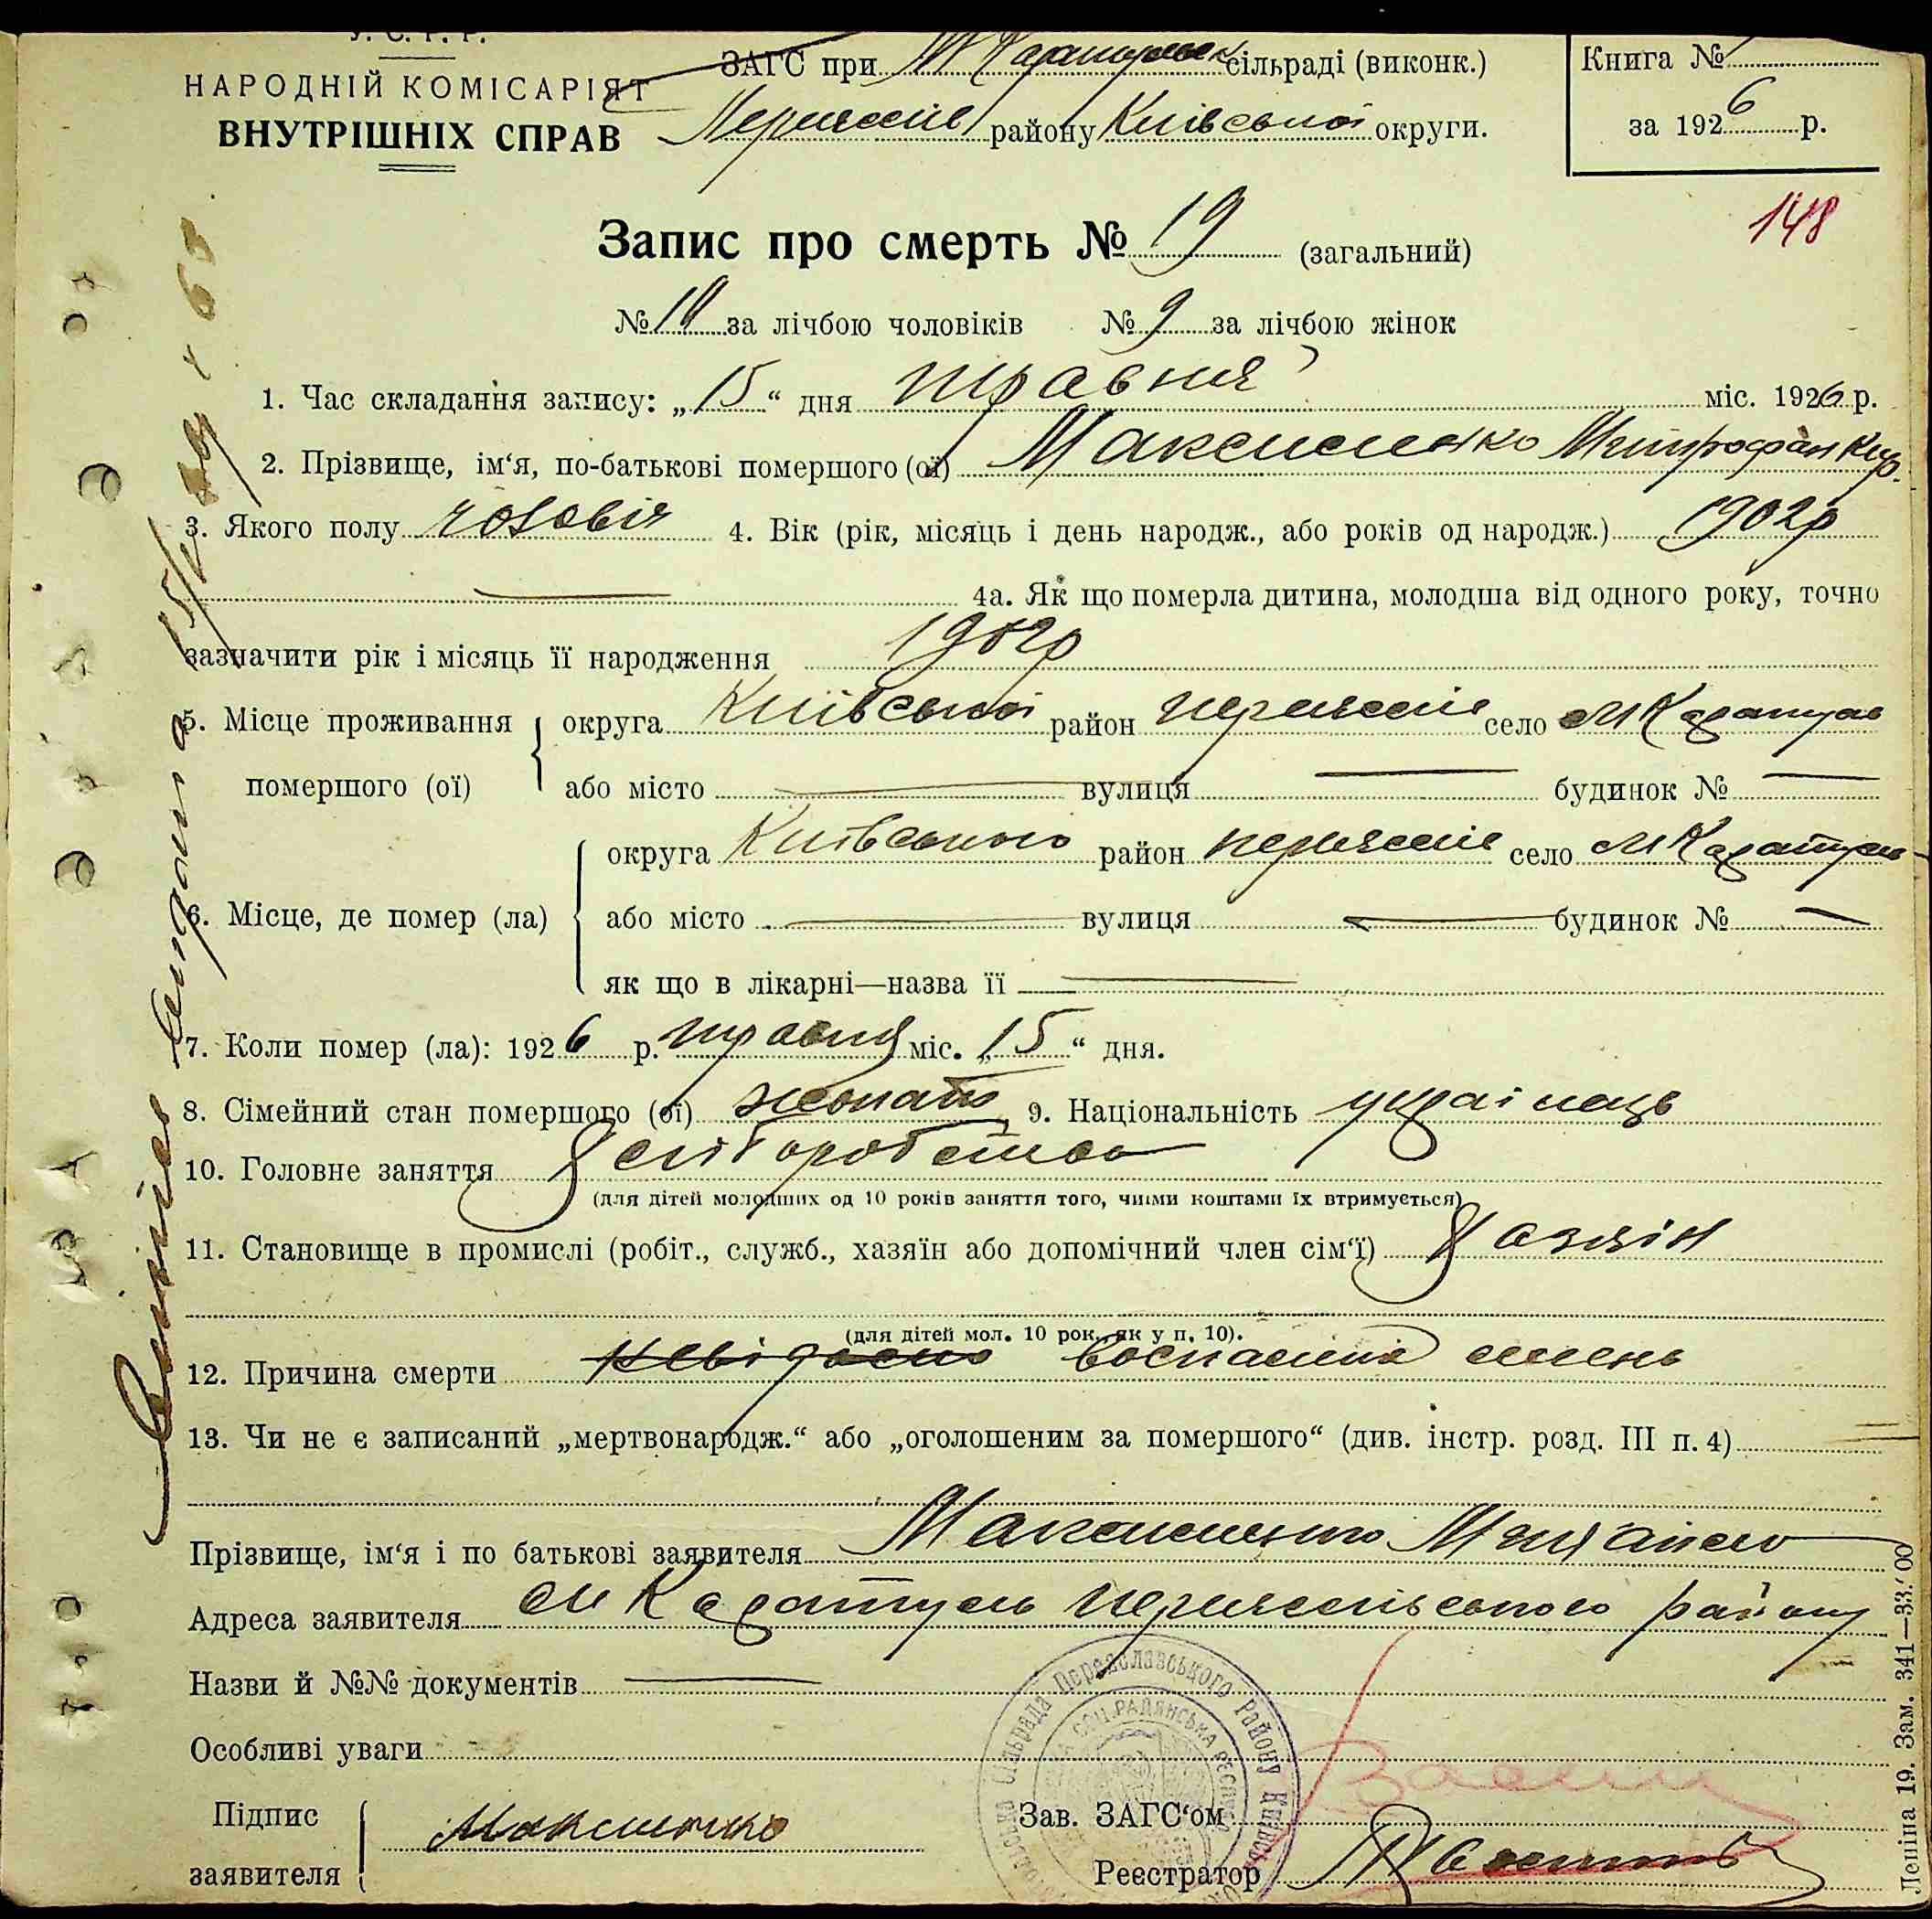 У. С. Р. Р.
НАРОДНІЙ КОМІСАРІЯТ
ВНУТРІШНІХ СПРАВ
ЗАГС при М Каратульск сільраді (виконк.)
району Київської округи.
Книга №
за 1926 р.
148
Запис про смерть № 19 (загальний)
№ 10 за лічбою чоловіків № 9 за лічбою жінок
1. Час складання запису: „15“ дня травня міс. 1926 р.
2. Прізвище, ім‘я, по-батькові помершого (ої) Максименко Митрофан Кир.
3. Якого полу чоловіч 4. Вік (рік, місяць і день народж., або років од народж.) 1902р
4а. Як що померла дитина, молодша від одного року, точно
зазначити рік і місяць її народження 1902р
5. Місце проживання помершого (ої) округа Київської район село М Каратуль
або місто вулиця будинок №
6. Місце, де помер (ла) округа Київського район село М Каратуль
або місто вулиця будинок №
як що в лікарні—назва її
7. Коли помер (ла): 1926 р. травня міс. „15“ дня.
8. Сімейний стан помершого (ої) жонато 9. Національність українець
10. Головне заняття
(для дітей молодших од 10 років заняття того, чиїми коштами їх втримується)
11. Становище в промислі (робіт., служб., хазяїн або допомічний член сім‘ї) Хазяін
(для дітей мол. 10 рок., як у п. 10).
12. Причина смерти невідомо
13. Чи не є записаний „мертвонародж.“ або „оголошеним за помершого“ (див. інстр. розд. III п. 4)
Прізвище, ім‘я і по батькові заявителя Максименко Михайло
Адреса заявителя М Каратуль району
Назви й №№ документів
Особливі уваги
Підпис заявителя Максименко
Зав. ЗАГС‘ом
Реєстратор
сільрада Переяславського Району Київськ
СОЦ. РАДЯНСЬКА РЕСПУБ
Леніна 19. Зам. 341—33.‘00